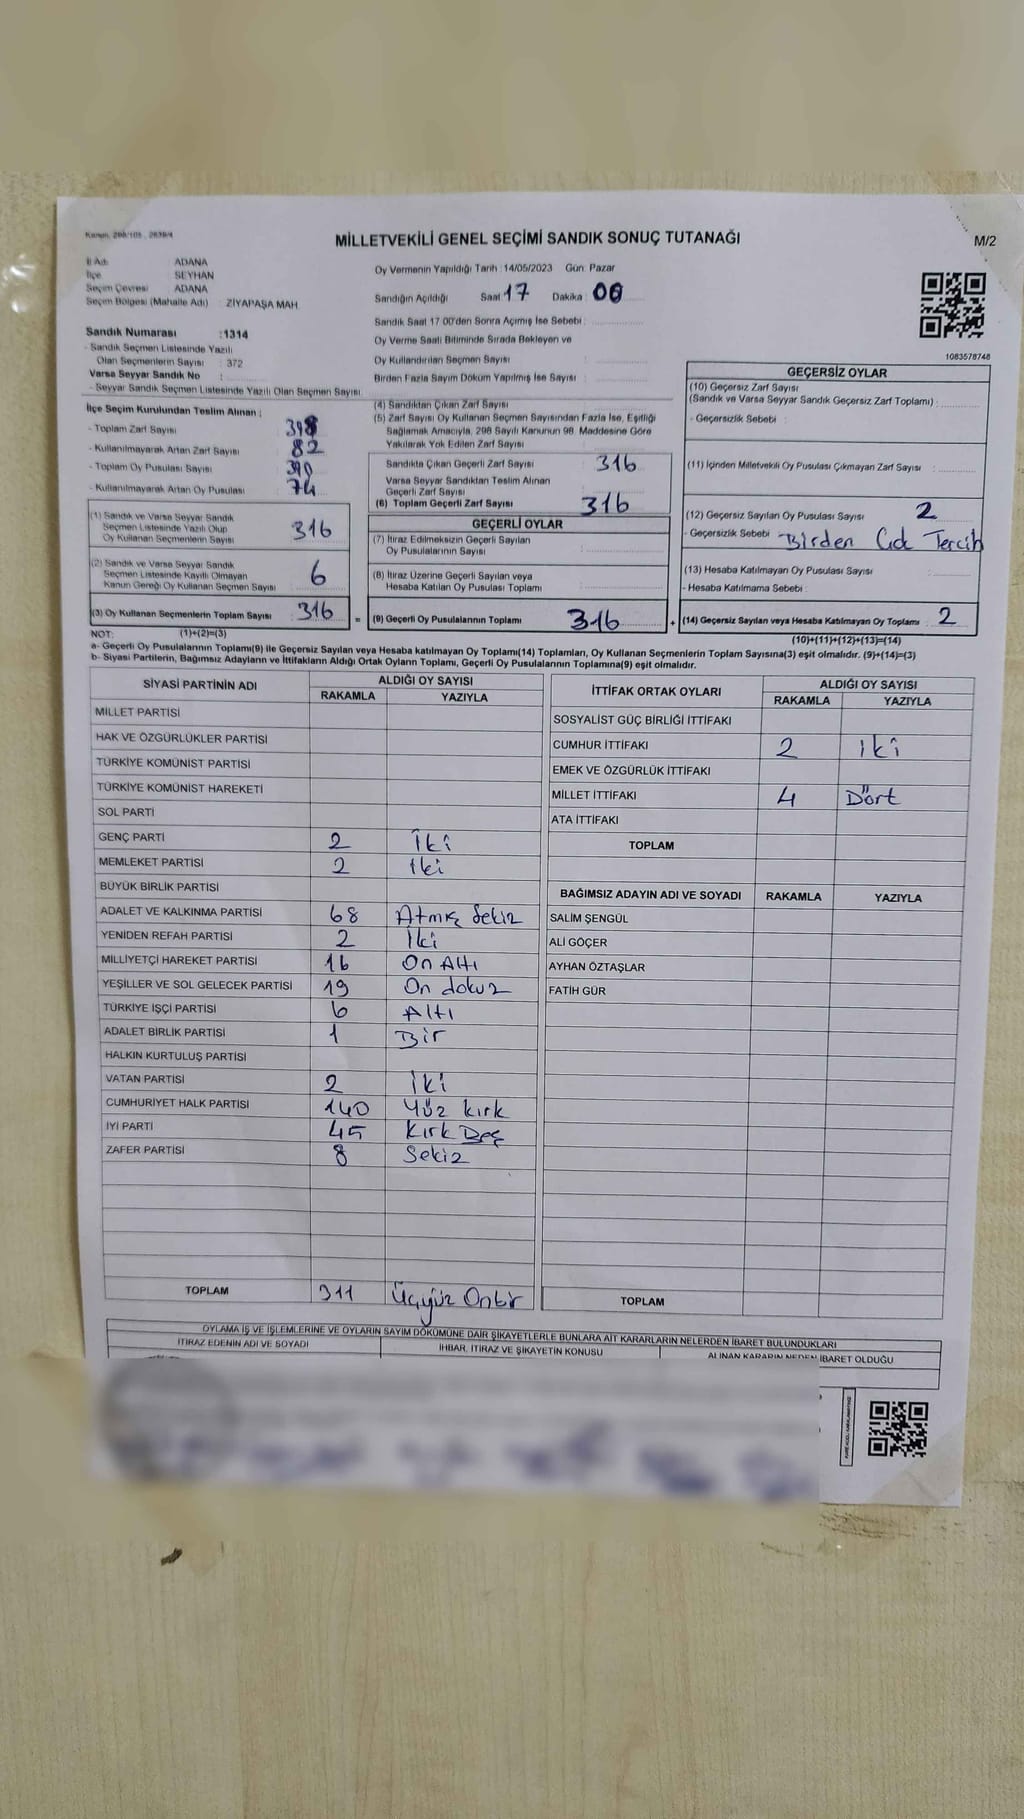 Kanun: 298/105, 2839/4
MİLLETVEKİLİ GENEL SEÇİMİ SANDIK SONUÇ TUTANAĞI
M/2
İl Adı ADANA
İlçe SEYHAN
Seçim Çevresi ADANA
Seçim Bölgesi (Mahalle Adı) : ZİYAPAŞA MAH.
Sandık Numarası :1314
- Sandık Seçmen Listesinde Yazılı
Olan Seçmenlerin Sayısı : 372
Varsa Seyyar Sandık No :
- Seyyar Sandık Seçmen Listesinde Yazılı Olan Seçmen Sayısı
Oy Vermenin Yapıldığı Tarih :14/05/2023 Gün: Pazar
Sandığın Açıldığı Saat 17 Dakika : 00
Sandık Saat 17.00'den Sonra Açılmış İse Sebebi :
Oy Verme Saati Bitiminde Sırada Bekleyen ve
Oy Kullandırılan Seçmen Sayısı :
Birden Fazla Sayım Döküm Yapılmış İse Sayısı :
1083578748
İlçe Seçim Kurulundan Teslim Alınan ;
- Toplam Zarf Sayısı : 398
- Kullanılmayarak Artan Zarf Sayısı : 82
- Toplam Oy Pusulası Sayısı : 390
- Kullanılmayarak Artan Oy Pusulası : 74
(1) Sandık ve Varsa Seyyar Sandık
Seçmen Listesinde Yazılı Olup
Oy Kullanan Seçmenlerin Sayısı : 316
(2) Sandık ve Varsa Seyyar Sandık
Seçmen Listesinde Kayıtlı Olmayan
Kanun Gereği Oy Kullanan Seçmen Sayısı : 6
(3) Oy Kullanan Seçmenlerin Toplam Sayısı : 316
(4) Sandıktan Çıkan Zarf Sayısı :
(5) Zarf Sayısı Oy Kullanan Seçmen Sayısından Fazla İse, Eşitliği
Sağlamak Amacıyla, 298 Sayılı Kanunun 98. Maddesine Göre
Yakılarak Yok Edilen Zarf Sayısı :
Sandıkta Çıkan Geçerli Zarf Sayısı 316
Varsa Seyyar Sandıktan Teslim Alınan
Geçerli Zarf Sayısı
(6) Toplam Geçerli Zarf Sayısı 316
GEÇERLİ OYLAR
(7) İtiraz Edilmeksizin Geçerli Sayılan
Oy Pusulalarının Sayısı :
(8) İtiraz Üzerine Geçerli Sayılan veya
Hesaba Katılan Oy Pusulası Toplamı :
= (9) Geçerli Oy Pusulalarının Toplamı 316 +
GEÇERSİZ OYLAR
(10) Geçersiz Zarf Sayısı
(Sandık ve Varsa Seyyar Sandık Geçersiz Zarf Toplamı) :
- Geçersizlik Sebebi :
(11) İçinden Milletvekili Oy Pusulası Çıkmayan Zarf Sayısı :
(12) Geçersiz Sayılan Oy Pusulası Sayısı : 2
- Geçersizlik Sebebi Birden Çok Tercih
(13) Hesaba Katılmayan Oy Pusulası Sayısı :
- Hesaba Katılmama Sebebi :
(14) Geçersiz Sayılan veya Hesaba Katılmayan Oy Toplamı : 2
NOT: (1)+(2)=(3)
(10)+(11)+(12)+(13)=(14)
a- Geçerli Oy Pusulalarının Toplamı(9) ile Geçersiz Sayılan veya Hesaba katılmayan Oy Toplamı(14) Toplamları, Oy Kullanan Seçmenlerin Toplam Sayısına(3) eşit olmalıdır. (9)+(14)=(3)
b- Siyasi Partilerin, Bağımsız Adayların ve İttifakların Aldığı Ortak Oyların Toplamı, Geçerli Oy Pusulalarının Toplamına(9) eşit olmalıdır.
SİYASİ PARTİNİN ADI ALDIĞI OY SAYISI
RAKAMLA YAZIYLA
MİLLET PARTİSİ
HAK VE ÖZGÜRLÜKLER PARTİSİ
TÜRKİYE KOMÜNİST PARTİSİ
TÜRKİYE KOMÜNİST HAREKETİ
SOL PARTİ
GENÇ PARTİ 2 İki
MEMLEKET PARTİSİ 2 İki
BÜYÜK BİRLİK PARTİSİ
ADALET VE KALKINMA PARTİSİ 68 Atmış Sekiz
YENİDEN REFAH PARTİSİ 2 İki
MİLLİYETÇİ HAREKET PARTİSİ 16 On Altı
YEŞİLLER VE SOL GELECEK PARTİSİ 19 On dokuz
TÜRKİYE İŞÇİ PARTİSİ 6 Altı
ADALET BİRLİK PARTİSİ 1 Bir
HALKIN KURTULUŞ PARTİSİ
VATAN PARTİSİ 2 İki
CUMHURİYET HALK PARTİSİ 140 Yüz kırk
İYİ PARTİ 45 Kırk Beş
ZAFER PARTİSİ 8 Sekiz
TOPLAM 311 Üçyüz Onbir
İTTİFAK ORTAK OYLARI ALDIĞI OY SAYISI
RAKAMLA YAZIYLA
SOSYALİST GÜÇ BİRLİĞİ İTTİFAKI
CUMHUR İTTİFAKI 2 iki
EMEK VE ÖZGÜRLÜK İTTİFAKI
MİLLET İTTİFAKI 4 Dört
ATA İTTİFAKI
TOPLAM
BAĞIMSIZ ADAYIN ADI VE SOYADI RAKAMLA YAZIYLA
SALİM ŞENGÜL
ALİ GÖÇER
AYHAN ÖZTAŞLAR
FATİH GÜR
TOPLAM
OYLAMA İŞ VE İŞLEMLERİNE VE OYLARIN SAYIM DÖKÜMÜNE DAİR ŞİKAYETLERLE BUNLARA AİT KARARLARIN NELERDEN İBARET BULUNDUKLARI
İTİRAZ EDENİN ADI VE SOYADI İHBAR, İTİRAZ VE ŞİKAYETİN KONUSU ALINAN KARARIN NEDEN İBARET OLDUĞU